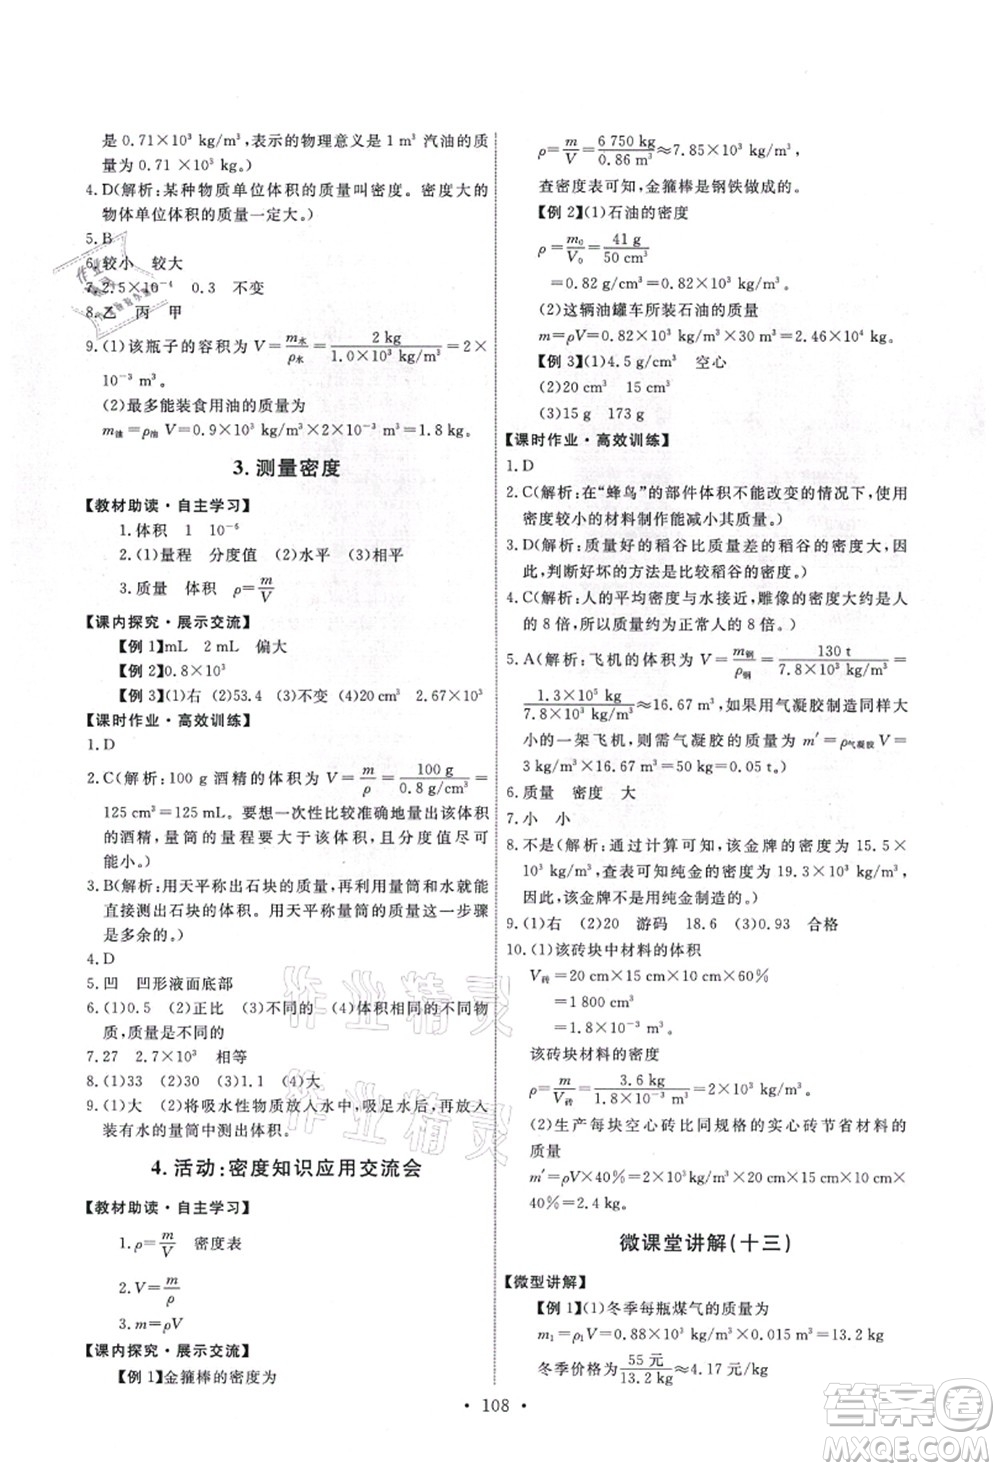 是 0.71×10³ kg/m³,表示的物理意义是 1 m³ 汽油的质
量为 0.71×10³ kg。)
4.D(解析:某种物质单位体积的质量叫密度。密度大的
物体单位体积的质量一定大。)
5.B
6.较小 较大
7.2.5×10⁻⁴ 0.3 不变
8.乙 丙 甲
9.(1)该瓶子的容积为 V=m水/ρ水=2 kg/1.0×10³ kg/m³=2×
10⁻³ m³。
(2)最多能装食用油的质量为
m油=ρ油 V=0.9×10³ kg/m³×2×10⁻³ m³=1.8 kg。
3.测量密度
【教材助读·自主学习】
1.体积 1 10⁻⁶
2.(1)量程 分度值 (2)水平 (3)相平
3.质量 体积 ρ=m/V
【课内探究·展示交流】
【例 1】mL 2 mL 偏大
【例 2】0.8×10³
【例 3】(1)右 (2)53.4 (3)不变 (4)20 cm³ 2.67×10³
【课时作业·高效训练】
1.D
2.C(解析:100 g 酒精的体积为 V=m/ρ=100 g/0.8 g/cm³=
125 cm³=125 mL。要想一次性比较准确地量出该体积
的酒精,量筒的量程要大于该体积,分度值尽可
能小。)
3.B(解析:用天平称出石块的质量,再利用量筒和水就能
直接测出石块的体积。用天平称量筒的质量这一步骤
是多余的。)
4.D
5.凹 凹形液面底部
6.(1)0.5 (2)正比 (3)不同 (4)体积相同的不同物
质,质量是不同的
7.27 2.7×10³ 相等
8.(1)33 (2)30 (3)1.1 (4)大
9.(1)大 (2)将吸水性物质放入水中,吸足水后,再放入
装有水的量筒中测出体积。
4.活动:密度知识应用交流会
【教材助读·自主学习】
1.ρ=m/V 密度表
2.V=m/ρ
3.m=ρV
【课内探究·展示交流】
【例 1】金箍棒的密度为
ρ=m/V=6 750 kg/0.86 m³≈7.85×10³ kg/m³。
查密度表可知,金箍棒是钢铁做成的。
【例 2】(1)石油的密度
ρ=m₀/V₀=41 g/50 cm³
=0.82 g/cm³=0.82×10³ kg/m³。
(2)这辆油罐车所装石油的质量
m=ρV=0.82×10³ kg/m³×30 m³=2.46×10⁴ kg。
【例 3】(1)4.5 g/cm³ 空心
(2)20 cm³ 15 cm³
(3)15 g 173 g
【课时作业·高效训练】
1.D
2.C(解析:在“蜂鸟”的部件体积不能改变的情况下,使用
密度较小的材料制作能减小其质量。)
3.D(解析:质量好的稻谷比质量差的稻谷的密度大,因
此,判断好坏的方法是比较稻谷的密度。)
4.C(解析:人的平均密度与水接近,雕像的密度大约是人
的 8 倍,所以质量约为正常人的 8 倍。)
5.A(解析:飞机的体积为 V=m钢/ρ钢=130 t/7.8×10³ kg/m³=
1.3×10⁵ kg/7.8×10³ kg/m³≈16.67 m³,如果用气凝胶制造同样大小
的一架飞机,则需气凝胶的质量为 m′=ρ气凝胶 V=
3 kg/m³×16.67 m³≈50 kg=0.05 t。)
6.质量 密度 大
7.小 小
8.不是(解析:通过计算可知,该金牌的密度为 15.5×
10³ kg/m³,查表可知纯金的密度为 19.3×10³ kg/m³,
因此,该金牌不是用纯金制造的。)
9.(1)右 (2)20 游码 18.6 (3)0.93 合格
10.(1)该砖块中材料的体积
V砖=20 cm×15 cm×10 cm×60%
=1 800 cm³
=1.8×10⁻³ m³。
该砖块材料的密度
ρ=m/V砖=3.6 kg/1.8×10⁻³ m³=2×10³ kg/m³。
(2)生产每块空心砖比同规格的实心砖节省材料的
质量
m′=ρV×40%=2×10³ kg/m³×20 cm×15 cm×10 cm×
40%=2.4 kg。
微课堂讲解(十三)
【微型讲解】
【例 1】(1)冬季每瓶煤气的质量为
m₁=ρ₁V=0.88×10³ kg/m³×0.015 m³=13.2 kg
冬季价格为55 元/13.2 kg≈4.17 元/kg
108
作业精灵
作业精灵
答案圈
MXQE.COM